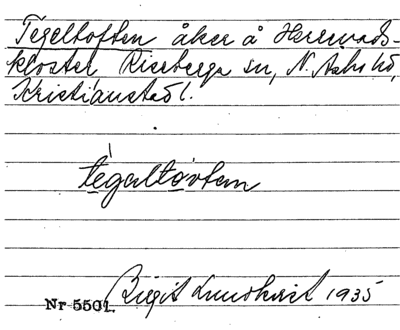 Tegeltoften åker å Herrevads-
kloster, Riseberga sn, N. Åsbo hd,
Kristianstad l.
tegaltovtem
Nr 5501. Birgit Lundkvist 1935